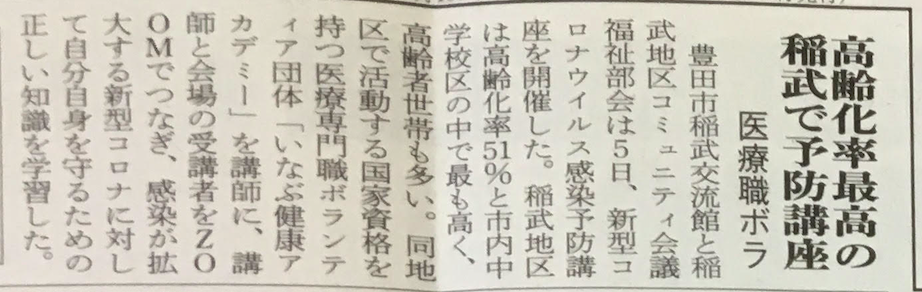 高齢化率最高の
稲武で予防講座
医療職ボラ
豊田市稲武交流館と稲
武地区コミュニティ会議
福祉部会は5日、新型コ
ロナウイルス感染予防講
座を開催した。稲武地区
は高齢化率51%と市内中
学校区の中で最も高く、
高齢者世帯も多い。同地
区で活動する国家資格を
持つ医療専門職ボランテ
ィア団体「いなぶ健康ア
カデミー」を講師に、講
師と会場の受講者をZO
OMでつなぎ、感染が拡
大する新型コロナに対し
て自分自身を守るための
正しい知識を学習した。